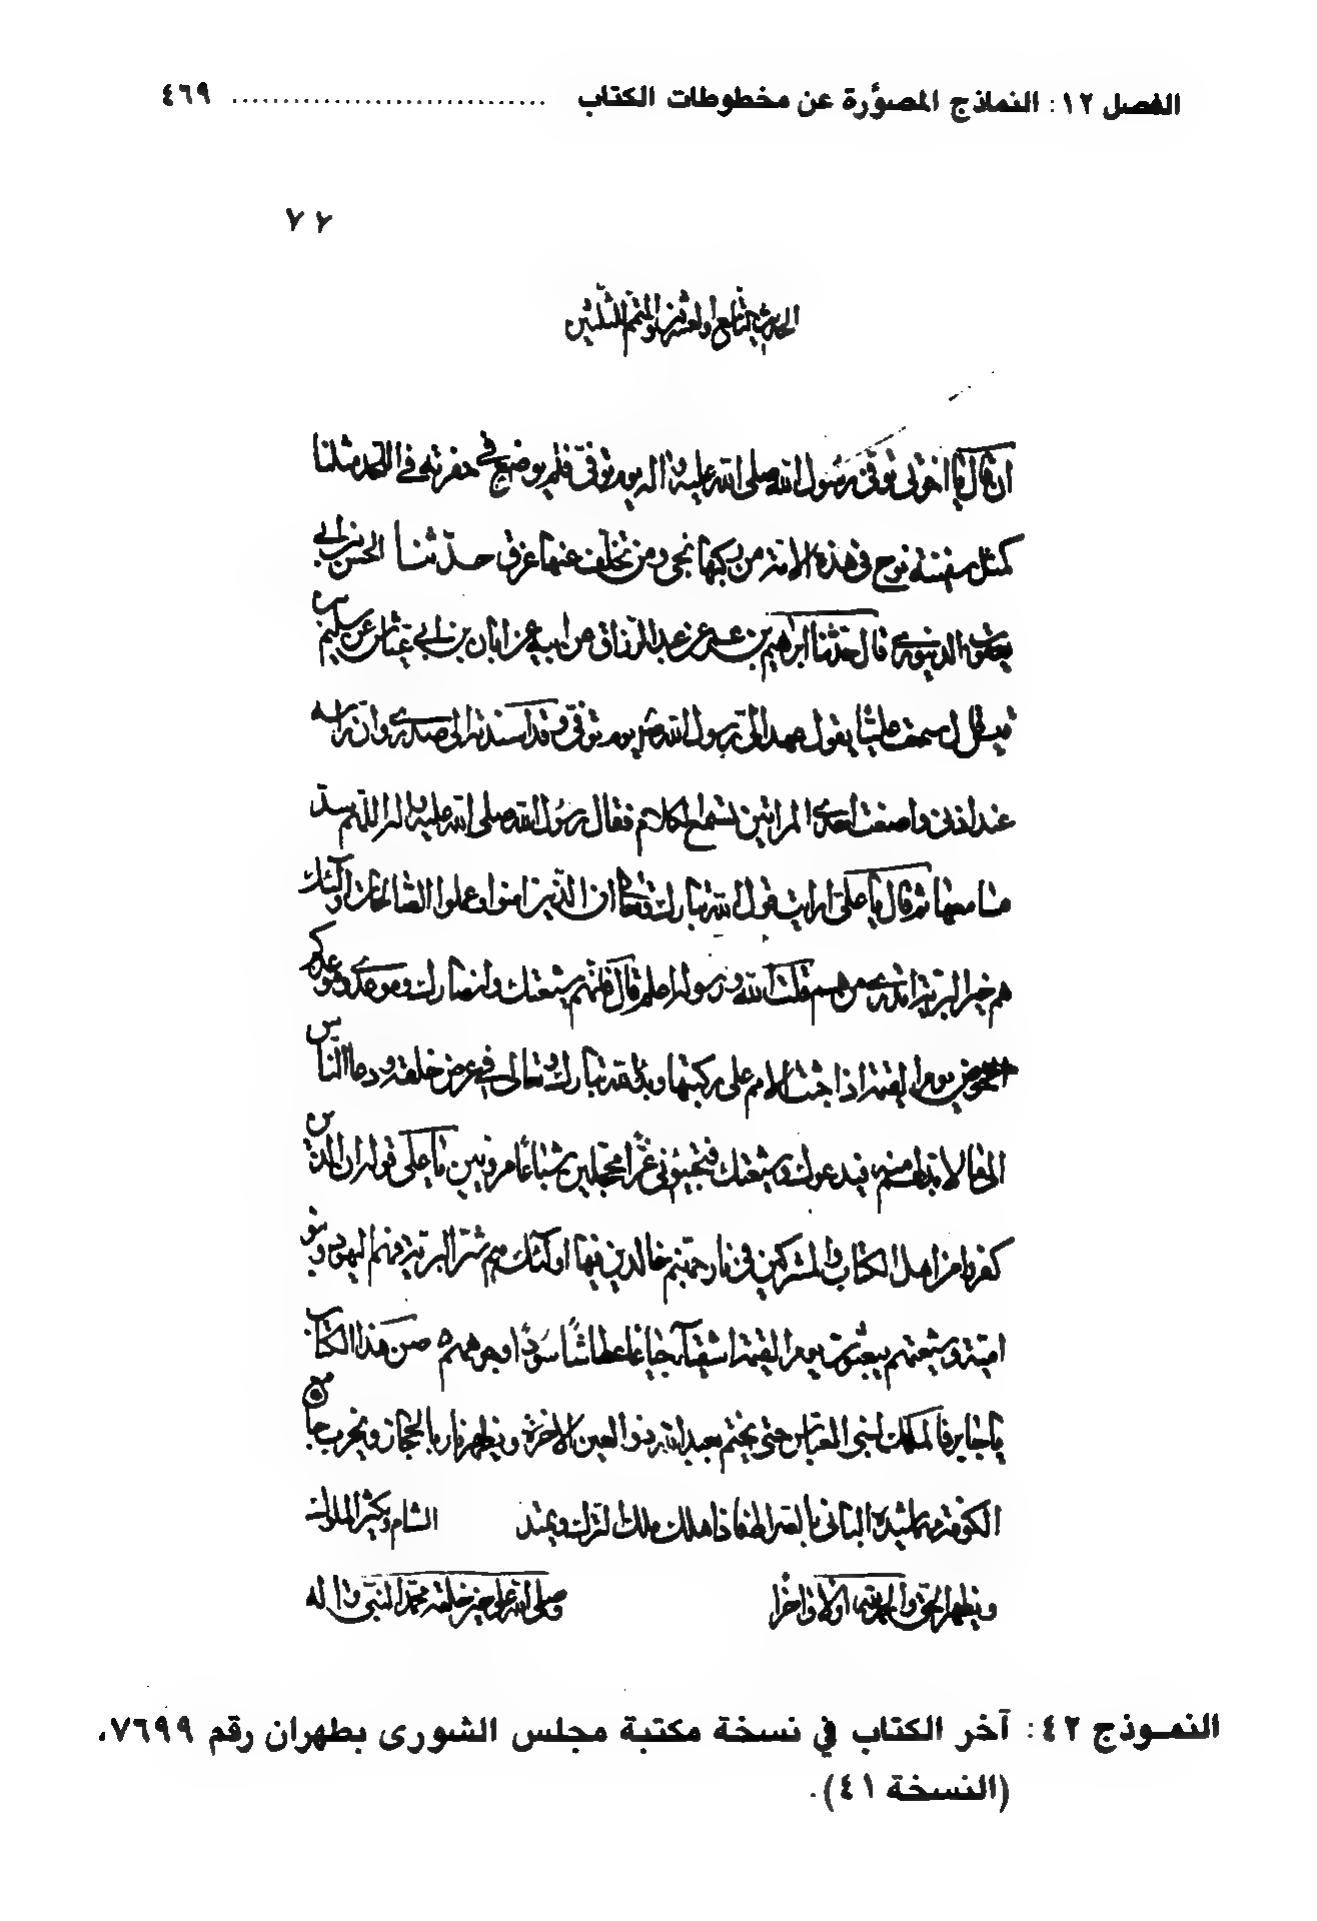 الفصل ١٢: النماذج المصوَّرة عن مخطوطات الكتاب .............................. ٤٦٩
٧٧
الحديث التاسع والعشرين والمتمم الثلثين
ان قال يا اخوتى توفى رسول الله صلى الله عليه واله يوم توفى فلم يوضع فى حفرته مثلنا
كمثل سفينة نوح فى هذه الامة من ركبها نجى ومن تخلف عنها غرق حدثنا الحسن بن ابى
يعقوب الدينورى قال حدثنا ابرهيم بن عمر عن عبد الرزاق عن ابيه عن ابان بن ابى عياش عن سليم بن
قيس قال سمعت عليا يقول عهد الى رسول الله ص يوم توفى وقد اسندته الى صدرى وان راسه
عند اذنى واصغت احدى المراتين لتسمع الكلام فقال رسول الله صلى الله عليه واله اللهم سد
مسامعها ثم قال يا على ارايت قول الله تبارك وتعالى ان الذين امنوا وعملوا الصالحات اولئك
هم خير البرية اتدرى من هم قلت الله ورسوله اعلم قال فانهم شيعتك وانصارك وموعدى وموعدكم
الحوض يوم القيمة اذا جثت الامم على ركبها وبدا لله تبارك وتعالى فى عرض خلقه ودعا الناس
الى ما لا بد لهم منه فيدعوك وشيعتك فتجيئونى غرا محجلين شباعا مرويين يا على قوله ان الذين
كفروا من اهل الكتاب والمشركين فى نار جهنم خالدين فيها اولئك هم شر البرية فهم اليهود وبنو
امية وشيعتهم يبعثون يوم القيمة اشقياء جياعا عطاشا سودا وجوههم من هذا الكتاب
يا جابر فالملك لبنى العباس حتى يختم بعبد الله ذو العين الاخرة ويظهر نار بالحجاز ويخرب جامع
الكوفة الثانى فاذا هلك ملك الترك الشام ويكثر الملوك
ويظهر الحق والحمد لله اولا واخرا وصلى الله على خير خلقه محمد النبى واله
النمـوذج ٤٢: آخر الكتاب في نسخة مكتبة مجلس الشورى بطهران رقم ٧٦٩٩،
(النسخة ٤١).